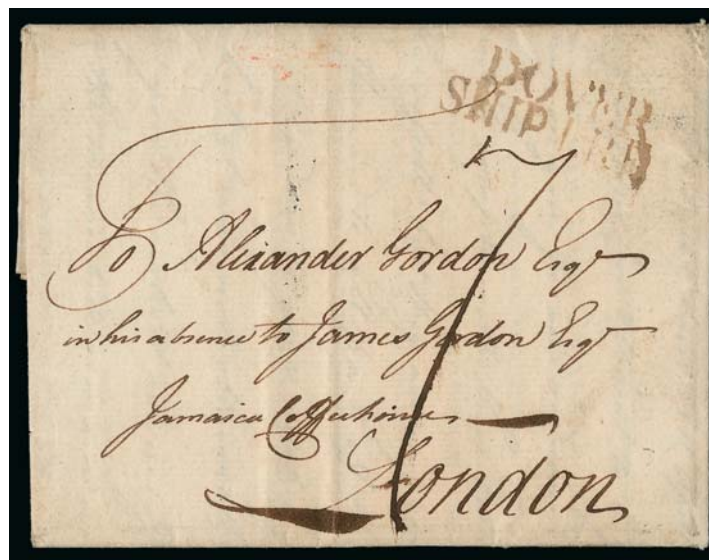 DOVER
SHIP LRE
7
To Alexander Gordon Esqr
in his absence to James Gordon Esqr
Jamaica Coffeehouse
London